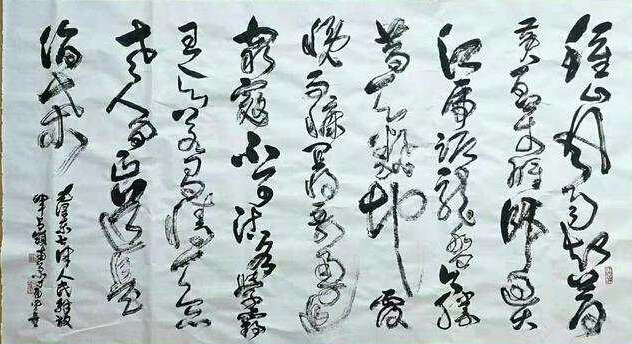 鍾山风雨起苍
黄百万雄师过大
江虎踞龙盘今胜
昔天翻地覆
慨而慷宜将剩勇追
穷寇不可沽名学霸
王天若有情天亦
老人间正道是
沧桑
毛泽东七律人民解放